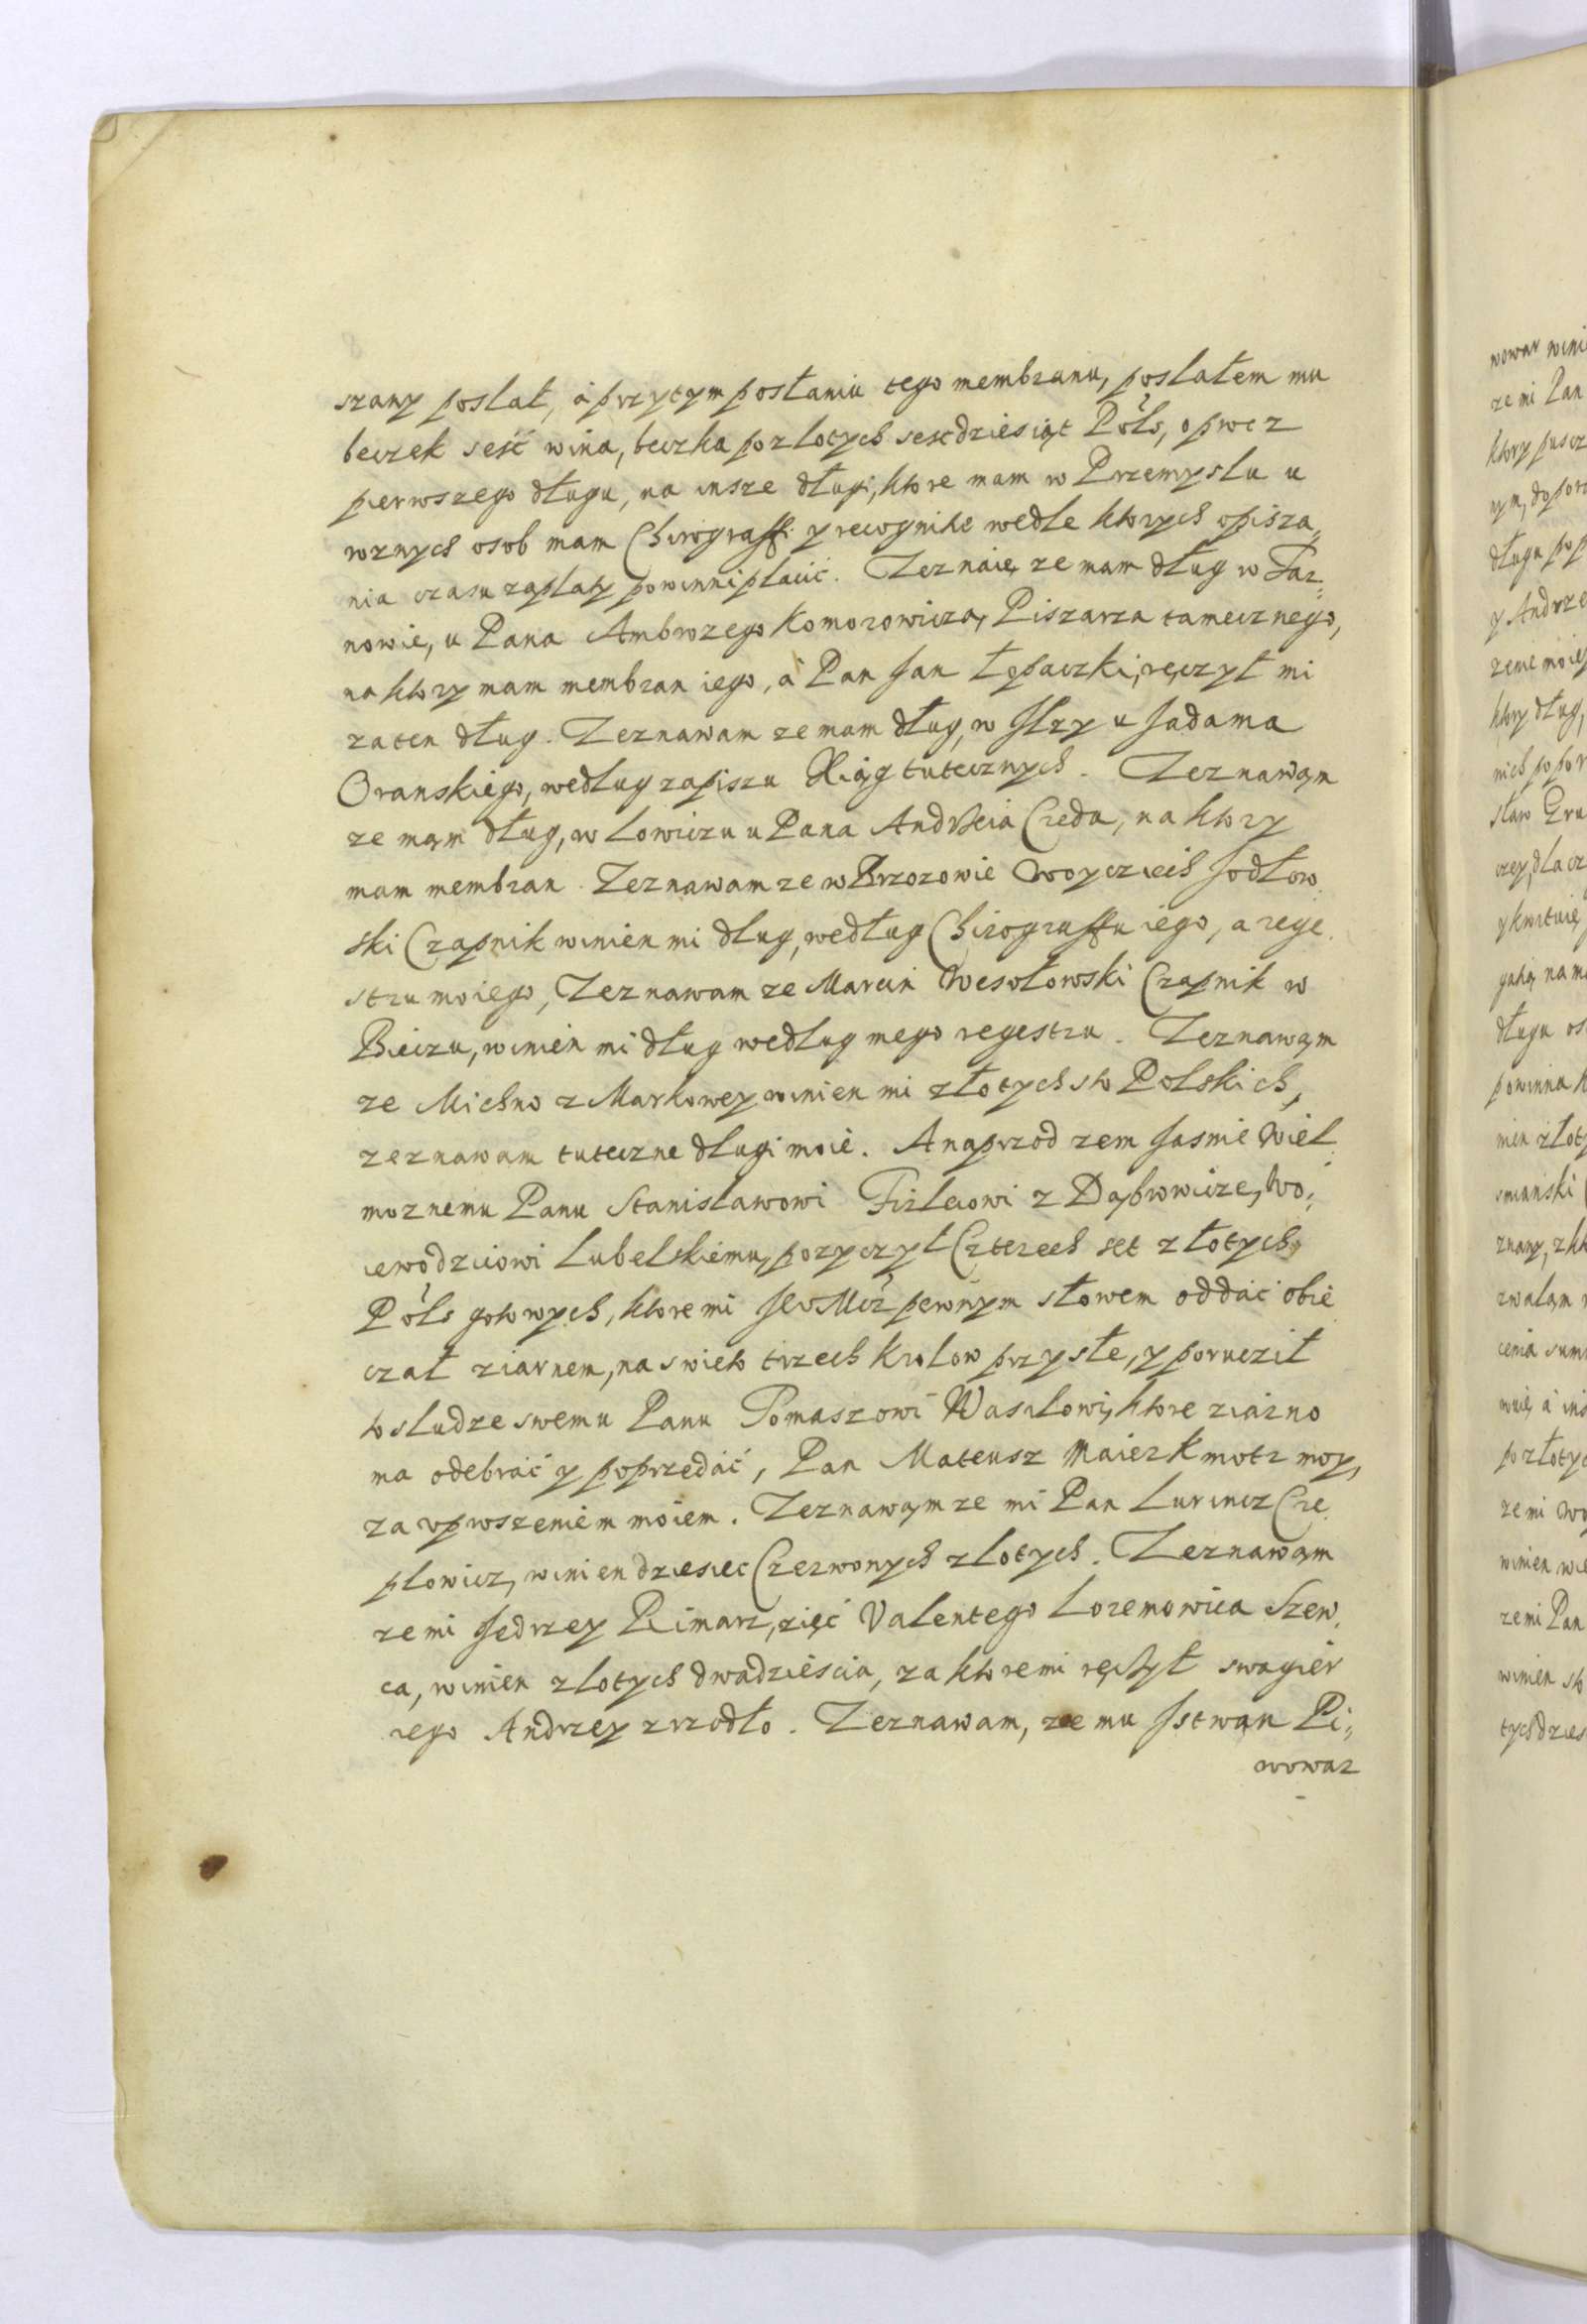 szany posłał, á przytym posłaniu tego membranu, posłałem mu
beczek seść wina, beczka po złotych sescdziesiąt Pols, oprocz
pierwszego długu, na insze długi, ktore mam w Przemyslu u
roznych osob mam Chirograffi y recognitie wedle ktorych opisza„
nia czasu zapłaty powinni płacić. Zeznaię ze mam dług w Tar„
nowie, u Pana Ambrozego Komorowicza, Piszarza tamecznego,
na ktory mam membran iego, á Pan Jan Łopaczki, ręczył mi
za ten dług. Zeznawam ze mam dług, w Jłzy u Jadama
Oranskiego, według zapiszu Xiąg tutecznych. Zeznawąm
ze mąm dług, w Lowiczu u Pana Andrzeia Creda, na ktory
mam membran. Zeznawam ze w Brzozowie Woycziech Jodłow„
ski Czapnik winien mi dług, według Chirograffu iego, a rege„
stru moiego, Zeznawam ze Marcin Wesołowski Czapnik w
Bieczu, winien mi dług według mego regestru. Zeznawąm
ze Michno z Markowey winien mi złotych sto Polskich,
zeznawam tuteczne długi moie. A naprzod zem Jasnie Wiel„
moznemu Panu Stanisławowi Firleiowi z Dąbrowicze, Wo„
iewodziowi Lubelskiemu, pozyczył Czterech set złotych
Pols gotowych, ktore mi Je° Mćź pewnym słowem oddać obie„
czał ziarnem, na swieto trzech Krolow przysłe, y porucził
to sludze swemu Panu Tomaszowi Wasilowi, ktore ziarno
ma odebrać y poprzedać, Pan Mateusz Maier Kmotr moy,
za uproszeniem moiem. Zeznawąm ze mi Pan Lurincz Cze„
plowicz, winien dziesiec Czerwonych złotych. Zeznawąm
ze mi Jedrzey Rimarz, zięć Valentego Lozemowica Szew„
ca, winien złotych dwadzieścia, za ktoremi ręczył swagier
iego Andrzey zrzodło. Zeznawam, ze mu Jstwan Pi„
wowar